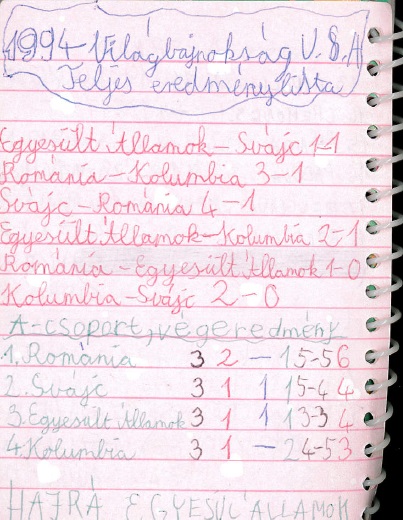 1994-Világbajnokság U.S.A
Teljes eredménylista
Egyesült Államok-Svájc 1-1
Románia-Kolumbia 3-1
Svájc-Románia 4-1
Egyesült Államok-Kolumbia 2-1
Románia-Egyesült Államok 1-0
Kolumbia-Svájc 2-0
A-csoport, végeredmény
1. Románia 3 2 - 1 5-5 6
2. Svájc 3 1 1 1 5-4 4
3. Egyesült Államok 3 1 1 1 3-3 4
4. Kolumbia 3 1 - 2 4-5 3
HAJRÁ EGYESÜL ÁLLAMOK